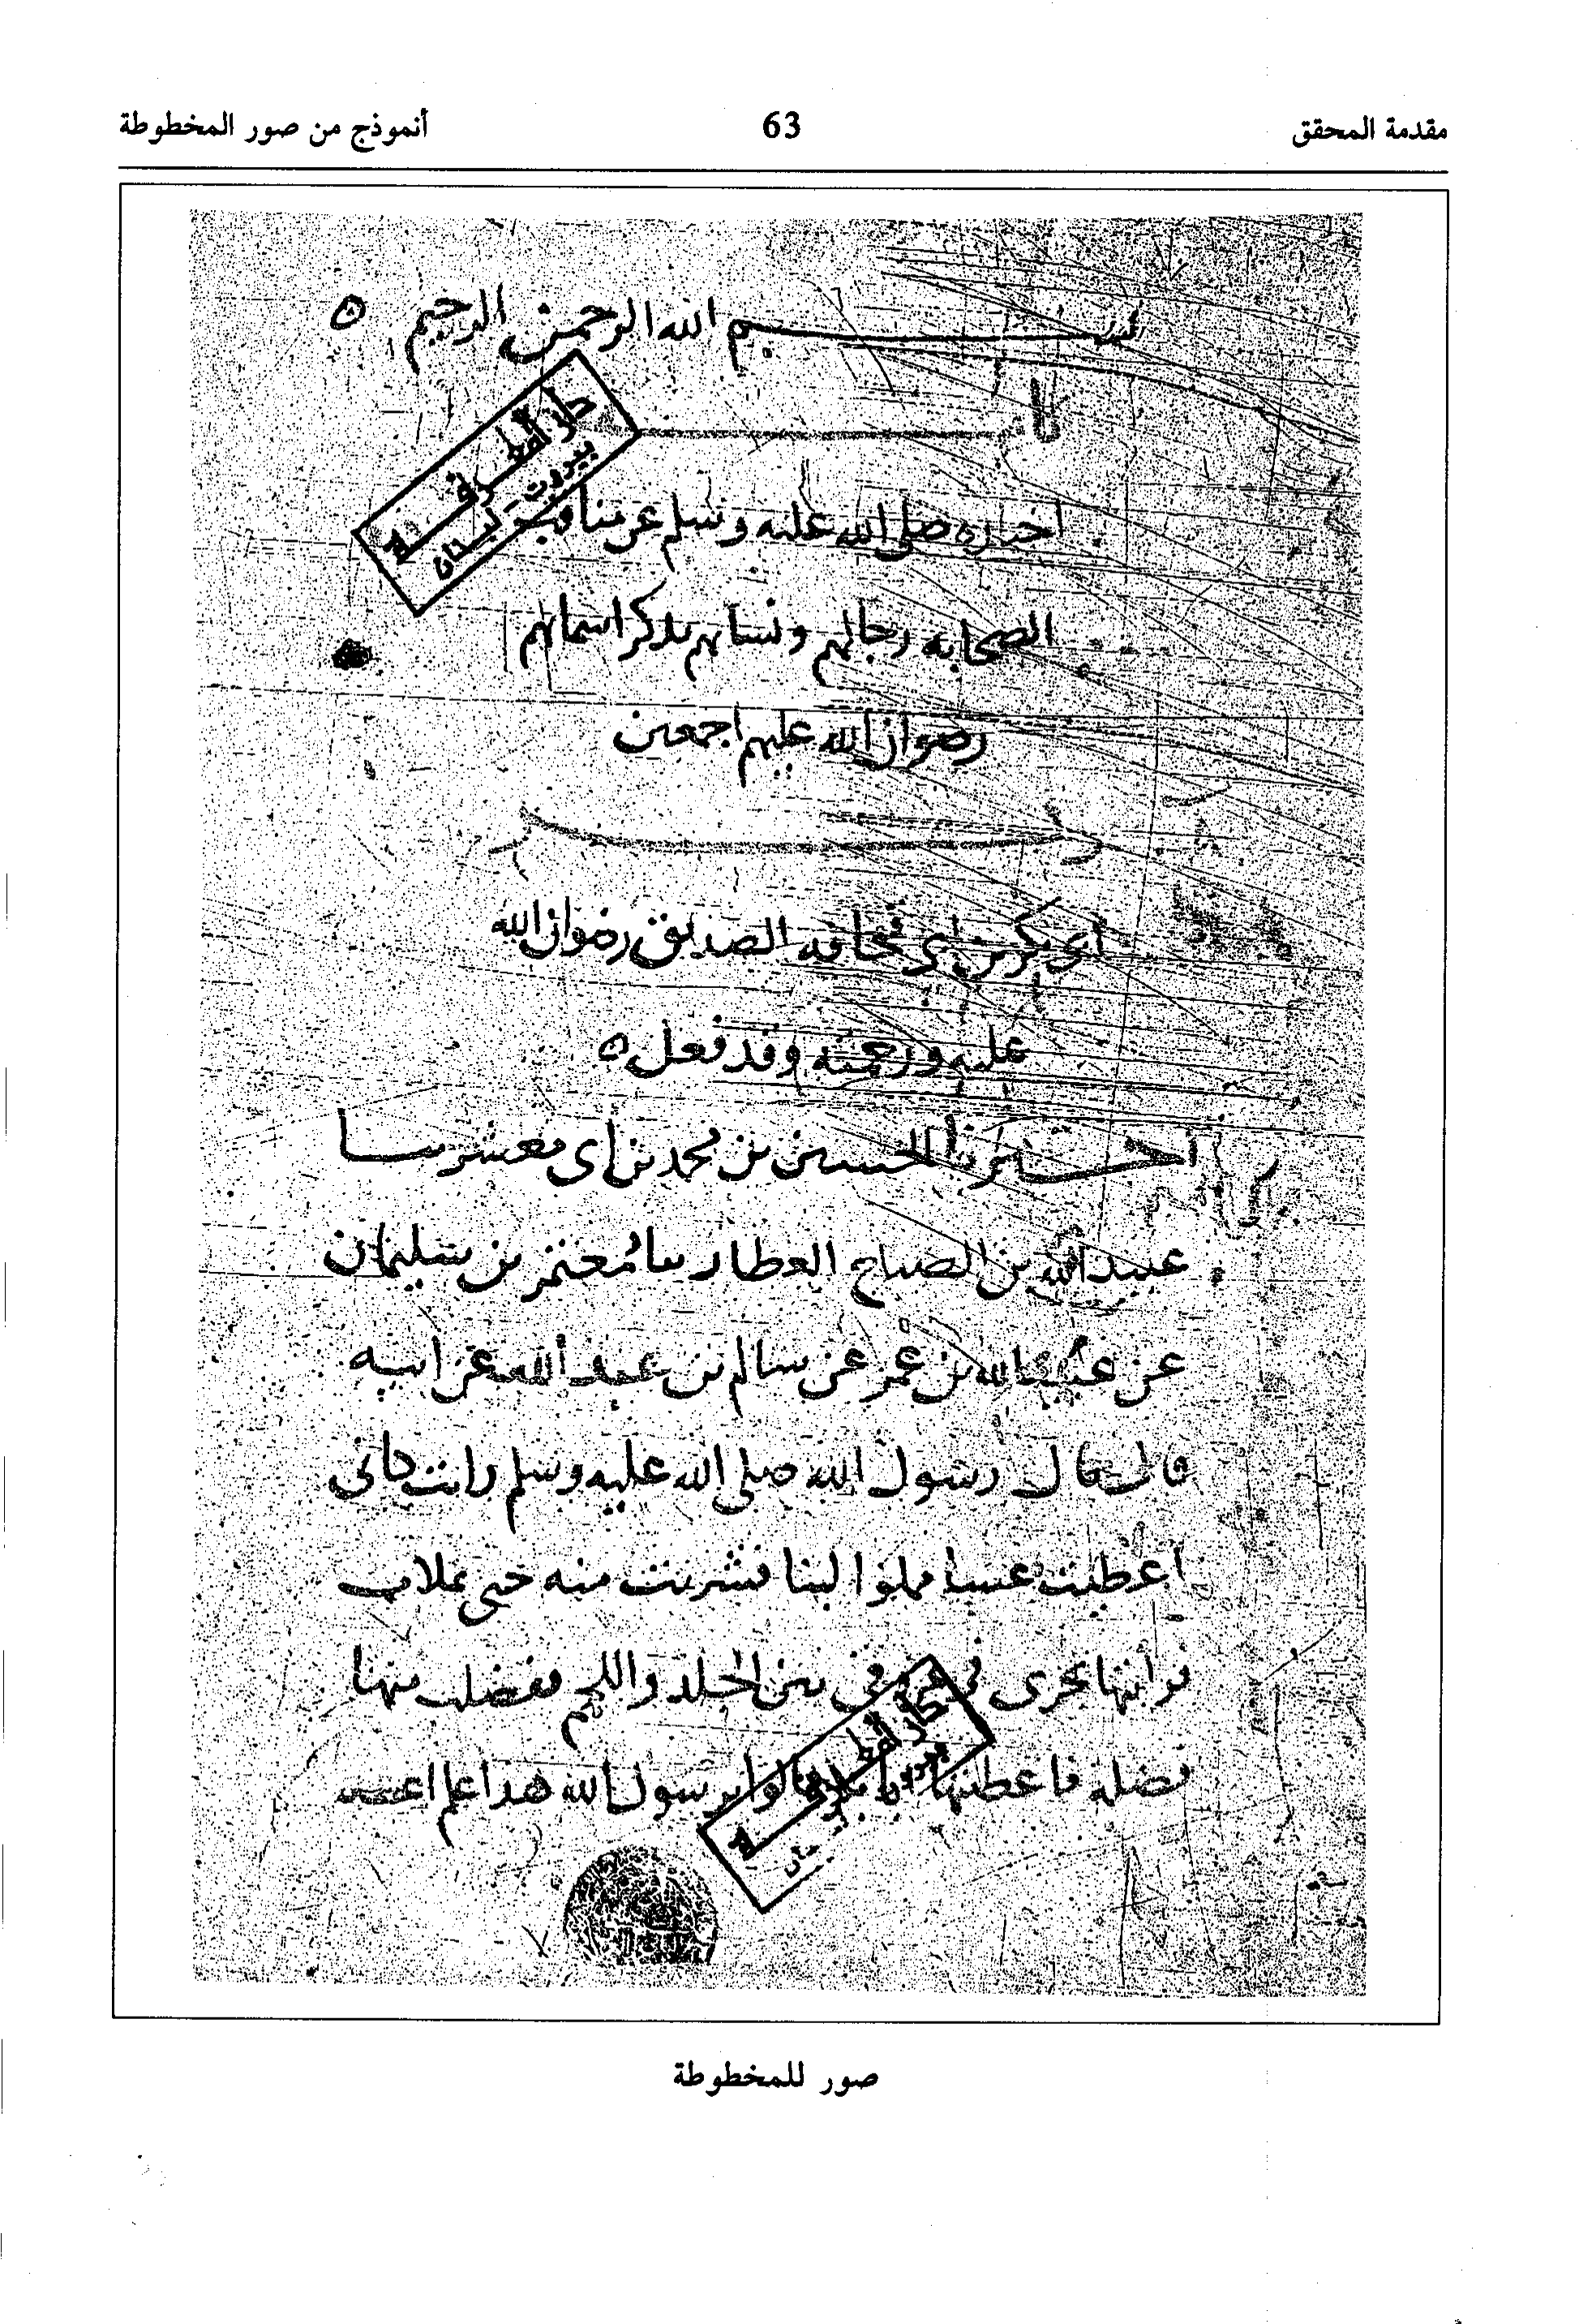 مقدمة المحقق
63
أنموذج من صور المخطوطة
بسم الله الرحمن الرحيم ه
دار المعرفة
بيروت - لبنان
اخباره صلى الله عليه وسلم عن مناقب
الصحابه رجالهم ونسايهم بذكر اسمايهم
رضوان الله عليهم اجمعين
أبي بكر بن أبي قحافه الصديق رضوان الله
عليه ورحمته وقد فعل ه
أخبرنا الحسين بن محمد بن أبي معشر
عبيد الله بن الصباح العطار معتمر بن سليمان
عن عبيد الله بن عمر عن سالم بن عبد الله عن ابيه
قال قال رسول الله صلى الله عليه وسلم رايت كاني
اعطيت عسا مملوا لبنا فشربت منه حتى تملات
فرأيتها تجري في عروقي بين الجلد واللحم ففضلت منها
فضلة فاعطيتها قالوا يرسول الله هذا علم
صور للمخطوطة